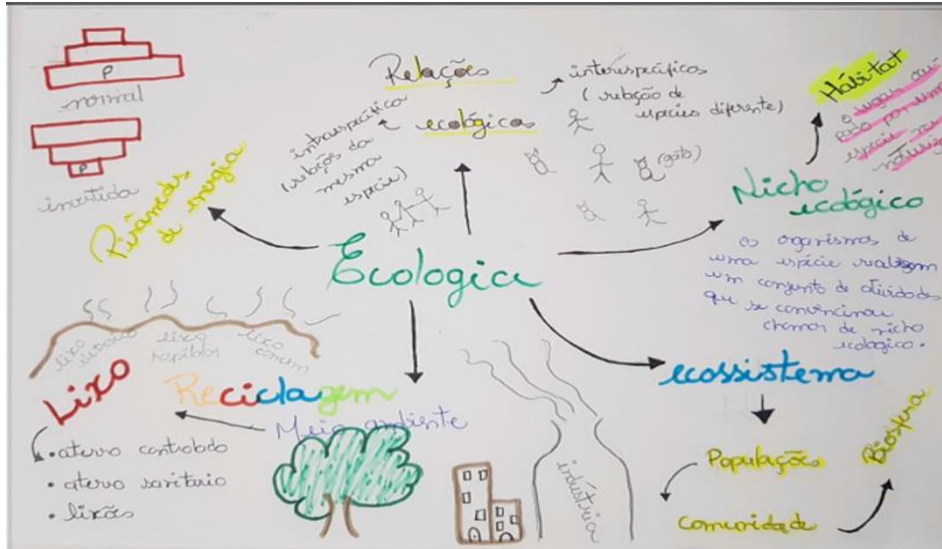 P
normal
P
invertida
Pirâmedes
de energia
Relações
ecológicas
intraespecífico
(relação da
mesma
espécie)
interespecíficos
(relação de
espécies diferente)
(gato)
Hábitat
o lugar
por uma
espécie na
natureza
Nicho
ecológico
os organismos de
uma espécie realizam
um conjunto de atividades
que se convencinou
chamar de nicho
ecologico.
Ecologia
lixo
lixo
hospitalar
lixo
comum
Lixo
Reciclagem
Meio ambiente
• aterro controlado
• aterro sanitario
• lixões
indústria
ecossistema
Populações
comunidade
Biosfera